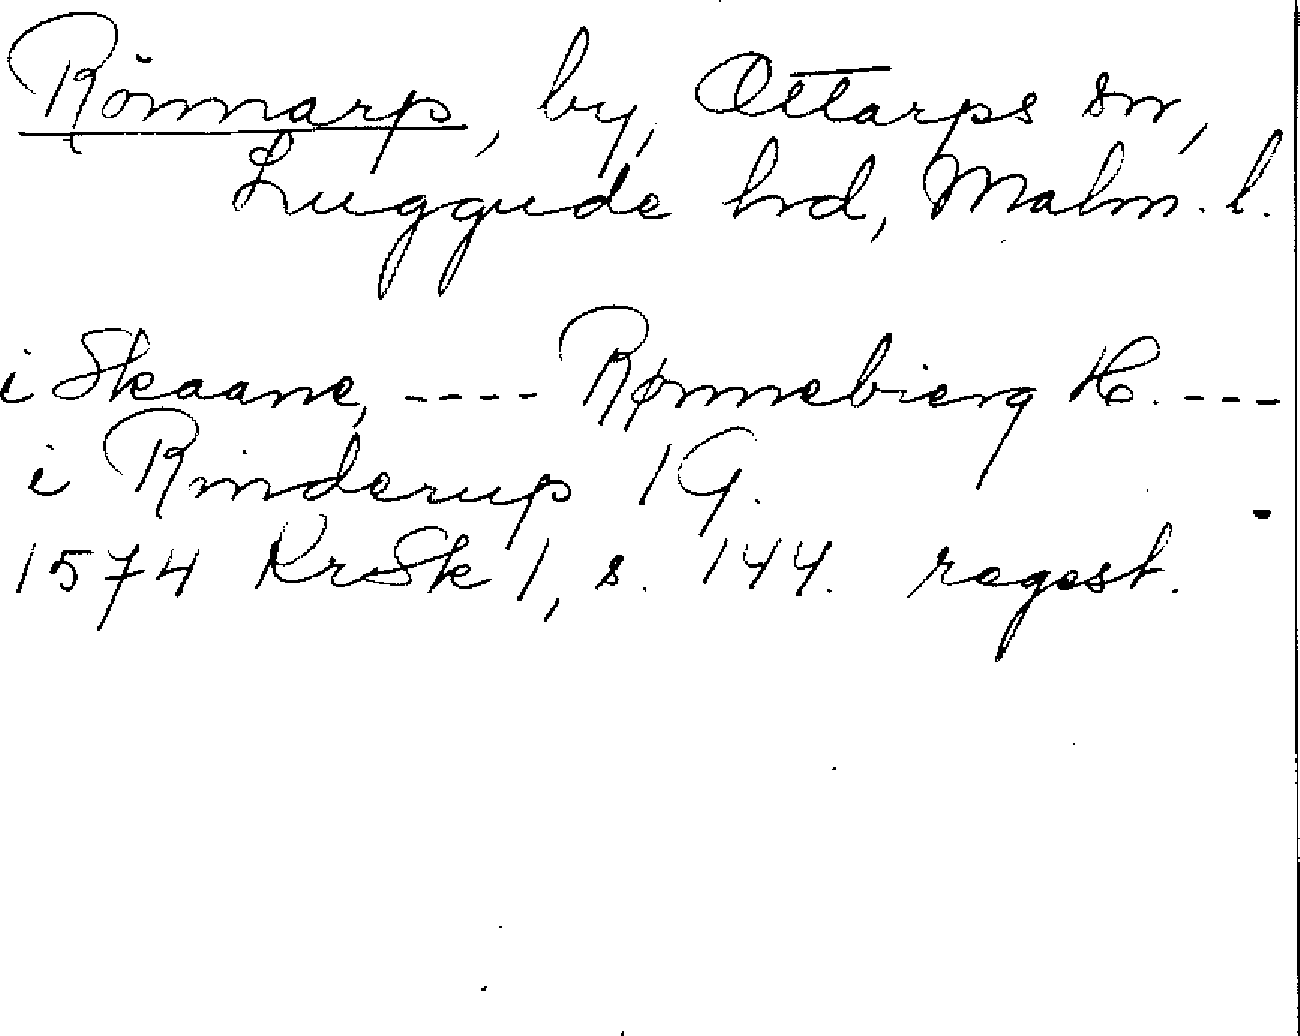 Rönnarp, by, Ottarps sn,
Luggude hrd, Malm. l.
i Skaane, ---- Rønnebierg H. ---
i Rinderup 1 G. -
1574 KrSk 1, s. 144. regest.